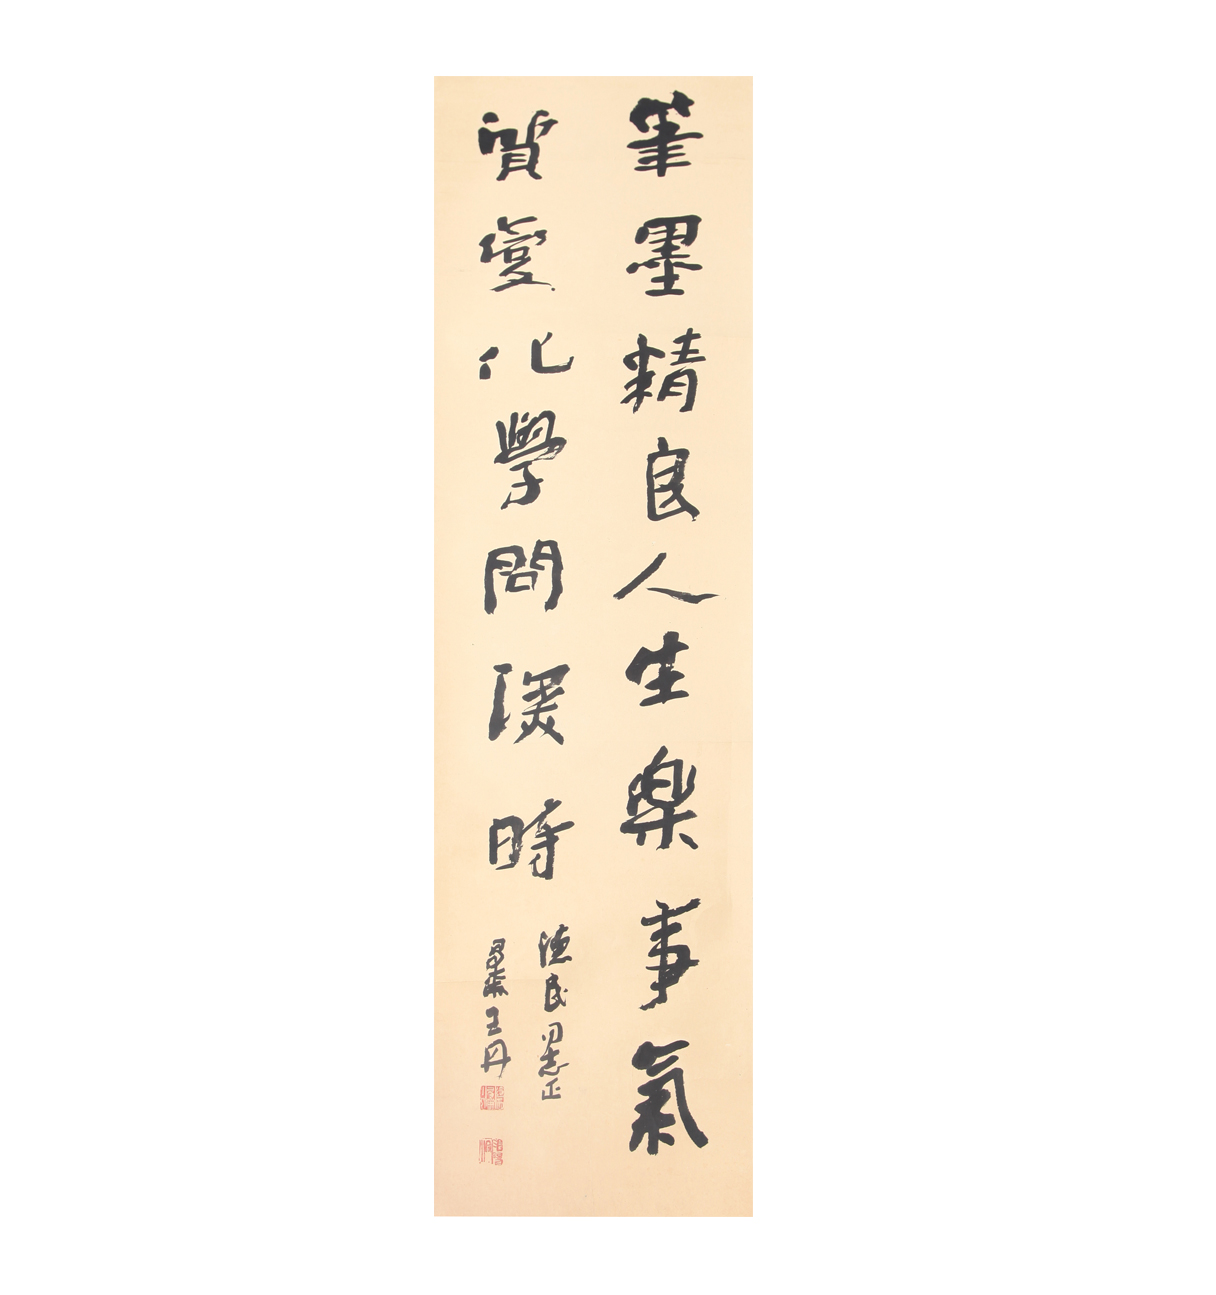 筆墨精良人生樂事氣
質變化學問深時
德民同志正
王丹